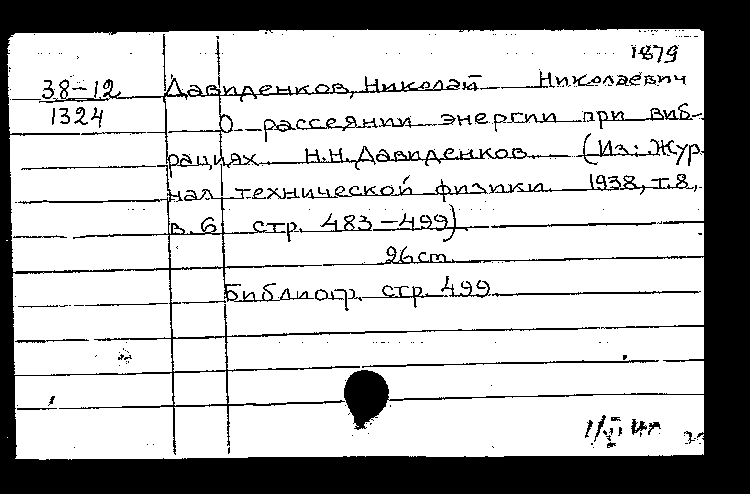 1879
38-12 Давиденков, Николай Николаевич
1324
О рассеянии энергии при виб-
рациях. Н.Н. Давиденков. (Из: Жур-
нал технической физики. 1938, т. 8,
в. 6 стр. 483-499)
26 cm.
Библиогр. стр. 499.